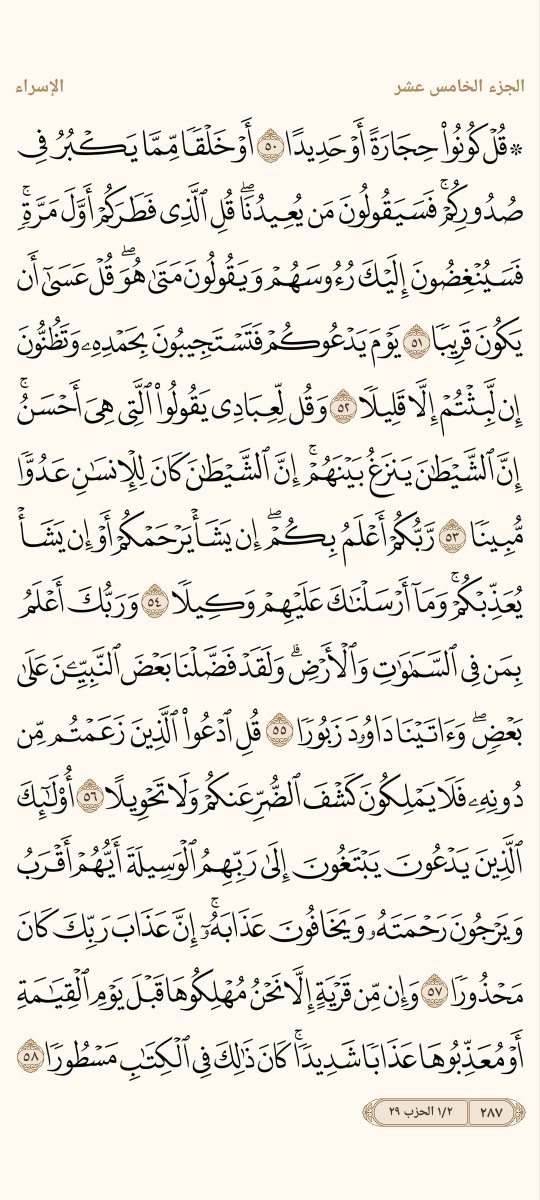 الجزء الخامس عشر
الإسراء
۞ قُلْ كُونُوا۟ حِجَارَةً أَوْ حَدِيدًا ٥٠ أَوْ خَلْقًا مِّمَّا يَكْبُرُ فِى
صُدُورِكُمْ ۚ فَسَيَقُولُونَ مَن يُعِيدُنَا ۖ قُلِ ٱلَّذِى فَطَرَكُمْ أَوَّلَ مَرَّةٍ ۚ
فَسَيُنْغِضُونَ إِلَيْكَ رُءُوسَهُمْ وَيَقُولُونَ مَتَىٰ هُوَ ۖ قُلْ عَسَىٰٓ أَن
يَكُونَ قَرِيبًا ٥١ يَوْمَ يَدْعُوكُمْ فَتَسْتَجِيبُونَ بِحَمْدِهِۦ وَتَظُنُّونَ
إِن لَّبِثْتُمْ إِلَّا قَلِيلًا ٥٢ وَقُل لِّعِبَادِى يَقُولُوا۟ ٱلَّتِى هِىَ أَحْسَنُ ۚ
إِنَّ ٱلشَّيْطَـٰنَ يَنزَغُ بَيْنَهُمْ ۚ إِنَّ ٱلشَّيْطَـٰنَ كَانَ لِلْإِنسَـٰنِ عَدُوًّا
مُّبِينًا ٥٣ رَّبُّكُمْ أَعْلَمُ بِكُمْ ۖ إِن يَشَأْ يَرْحَمْكُمْ أَوْ إِن يَشَأْ
يُعَذِّبْكُمْ ۚ وَمَآ أَرْسَلْنَـٰكَ عَلَيْهِمْ وَكِيلًا ٥٤ وَرَبُّكَ أَعْلَمُ
بِمَن فِى ٱلسَّمَـٰوَٰتِ وَٱلْأَرْضِ ۗ وَلَقَدْ فَضَّلْنَا بَعْضَ ٱلنَّبِيِّـۧنَ عَلَىٰ
بَعْضٍ ۖ وَءَاتَيْنَا دَاوُۥدَ زَبُورًا ٥٥ قُلِ ٱدْعُوا۟ ٱلَّذِينَ زَعَمْتُم مِّن
دُونِهِۦ فَلَا يَمْلِكُونَ كَشْفَ ٱلضُّرِّ عَنكُمْ وَلَا تَحْوِيلًا ٥٦ أُو۟لَـٰٓئِكَ
ٱلَّذِينَ يَدْعُونَ يَبْتَغُونَ إِلَىٰ رَبِّهِمُ ٱلْوَسِيلَةَ أَيُّهُمْ أَقْرَبُ
وَيَرْجُونَ رَحْمَتَهُۥ وَيَخَافُونَ عَذَابَهُۥٓ ۚ إِنَّ عَذَابَ رَبِّكَ كَانَ
مَحْذُورًا ٥٧ وَإِن مِّن قَرْيَةٍ إِلَّا نَحْنُ مُهْلِكُوهَا قَبْلَ يَوْمِ ٱلْقِيَـٰمَةِ
أَوْ مُعَذِّبُوهَا عَذَابًا شَدِيدًا ۚ كَانَ ذَٰلِكَ فِى ٱلْكِتَـٰبِ مَسْطُورًا ٥٨
٢٨٧
١/٢ الحزب ٢٩